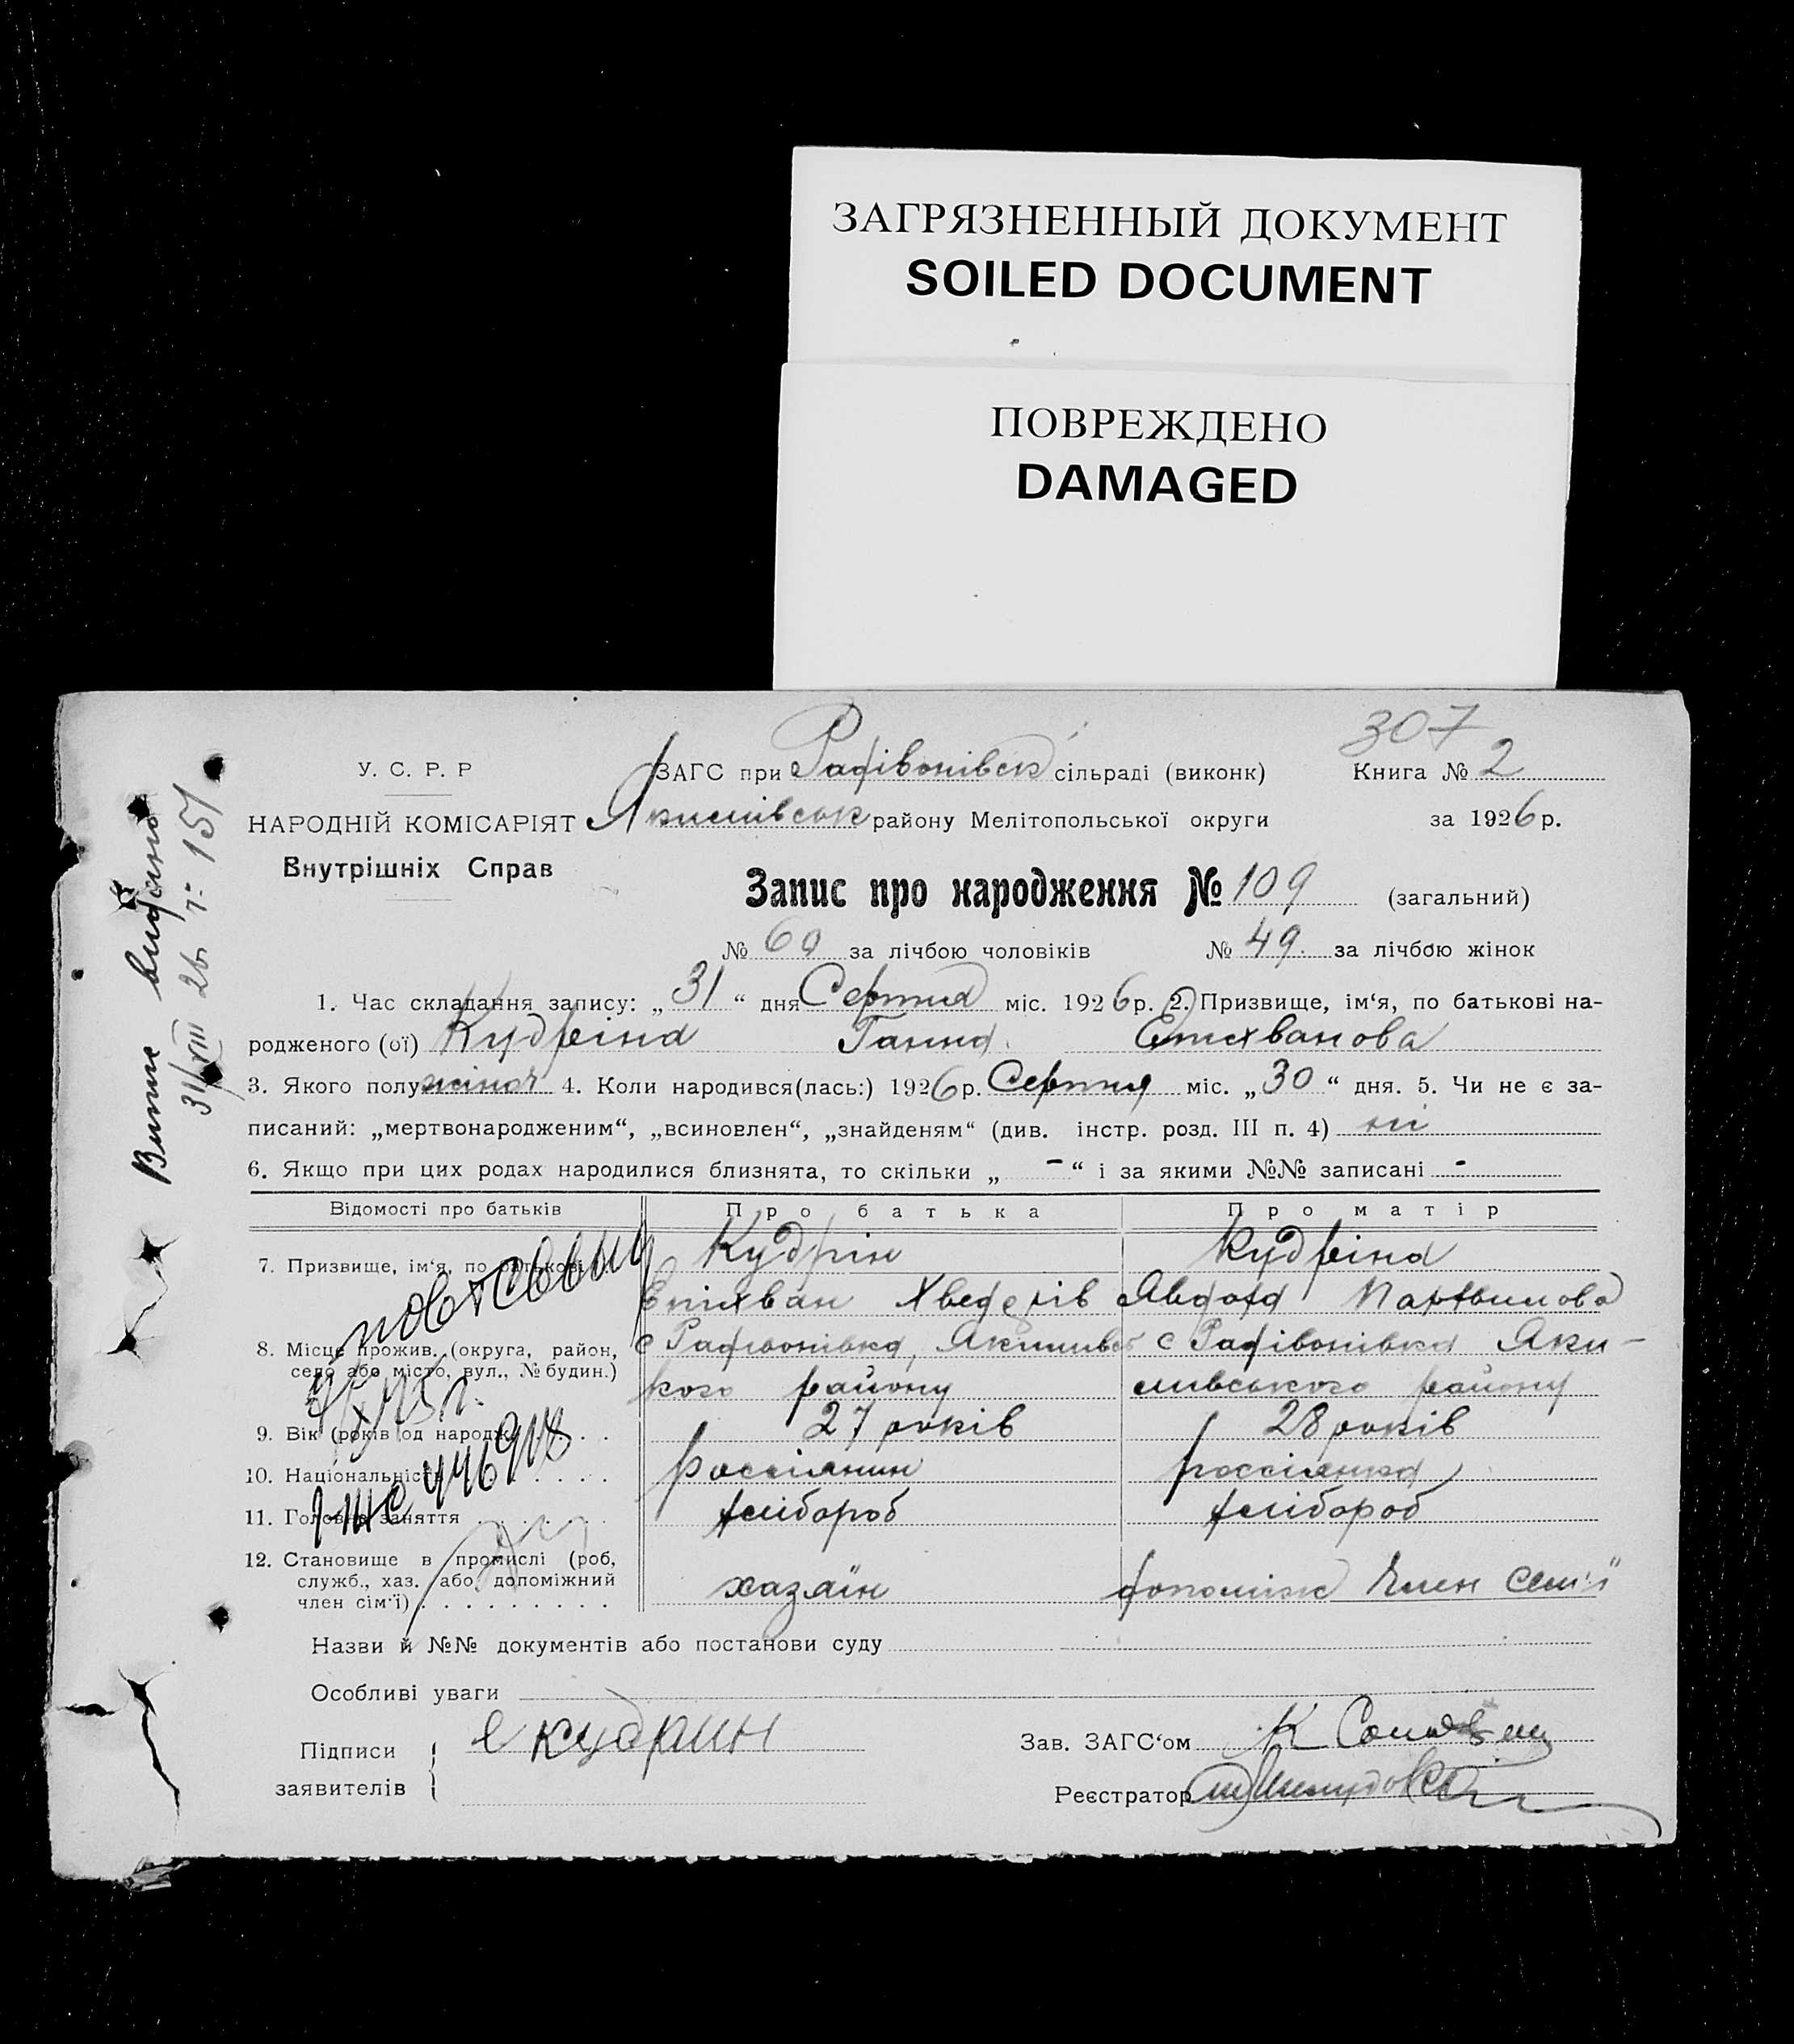 ЗАГРЯЗНЕННЫЙ ДОКУМЕНТ
SOILED DOCUMENT
ПОВРЕЖДЕНО
DAMAGED
307
У. С. Р. Р
ЗАГС при Радівонівськ сільраді (виконк) Книга № 2
НАРОДНІЙ КОМІСАРІЯТ Якимівськ району Мелітопольської округи за 1926 р.
Внутрішніх Справ
Запис про народження № 109 (загальний)
№ 60 за лічбою чоловіків № 49. за лічбою жінок
1. Час складання запису: „31“ дня Серпня міс. 1926 р. 2. Призвище, ім‘я, по батькові на-
родженого (ої) Кудріна Ганна Епихванова
3. Якого полу жіноч 4. Коли народився(лась:) 1926 р. Серпня міс. „30“ дня. 5. Чи не є за-
писаний: „мертвонародженим“, „всиновлен“, „знайденям“ (див. інстр. розд. III п. 4) ні
6. Якщо при цих родах народилися близнята, то скільки „-“ і за якими №№ записані -
Відомості про батьків Про батька Про матір
7. Призвище, ім‘я, по батькові Кудрін Кудріна
Епіхван Хведерів Явдоха Пархвимова
8. Місце прожив. (округа, район, с Радівонівка, Якимивсь с Радівонівка Яки-
село або місто, вул., № будин.) кого району мивського району
9. Вік (років од народж. 27 років 28 років
10. Національність россіянин россіянка
11. Головне заняття хлібороб хлібороб
12. Становище в промислі (роб,
служб., хаз. або допоміжний хазяїн допоміж Член семї
член сім‘ї)
Назви й №№ документів або постанови суду
Особливі уваги
Підписи е кудрин Зав. ЗАГС‘ом К
заявителів Реєстратор
Випис видано
31/VIII 26. 151
повт свыд
446918